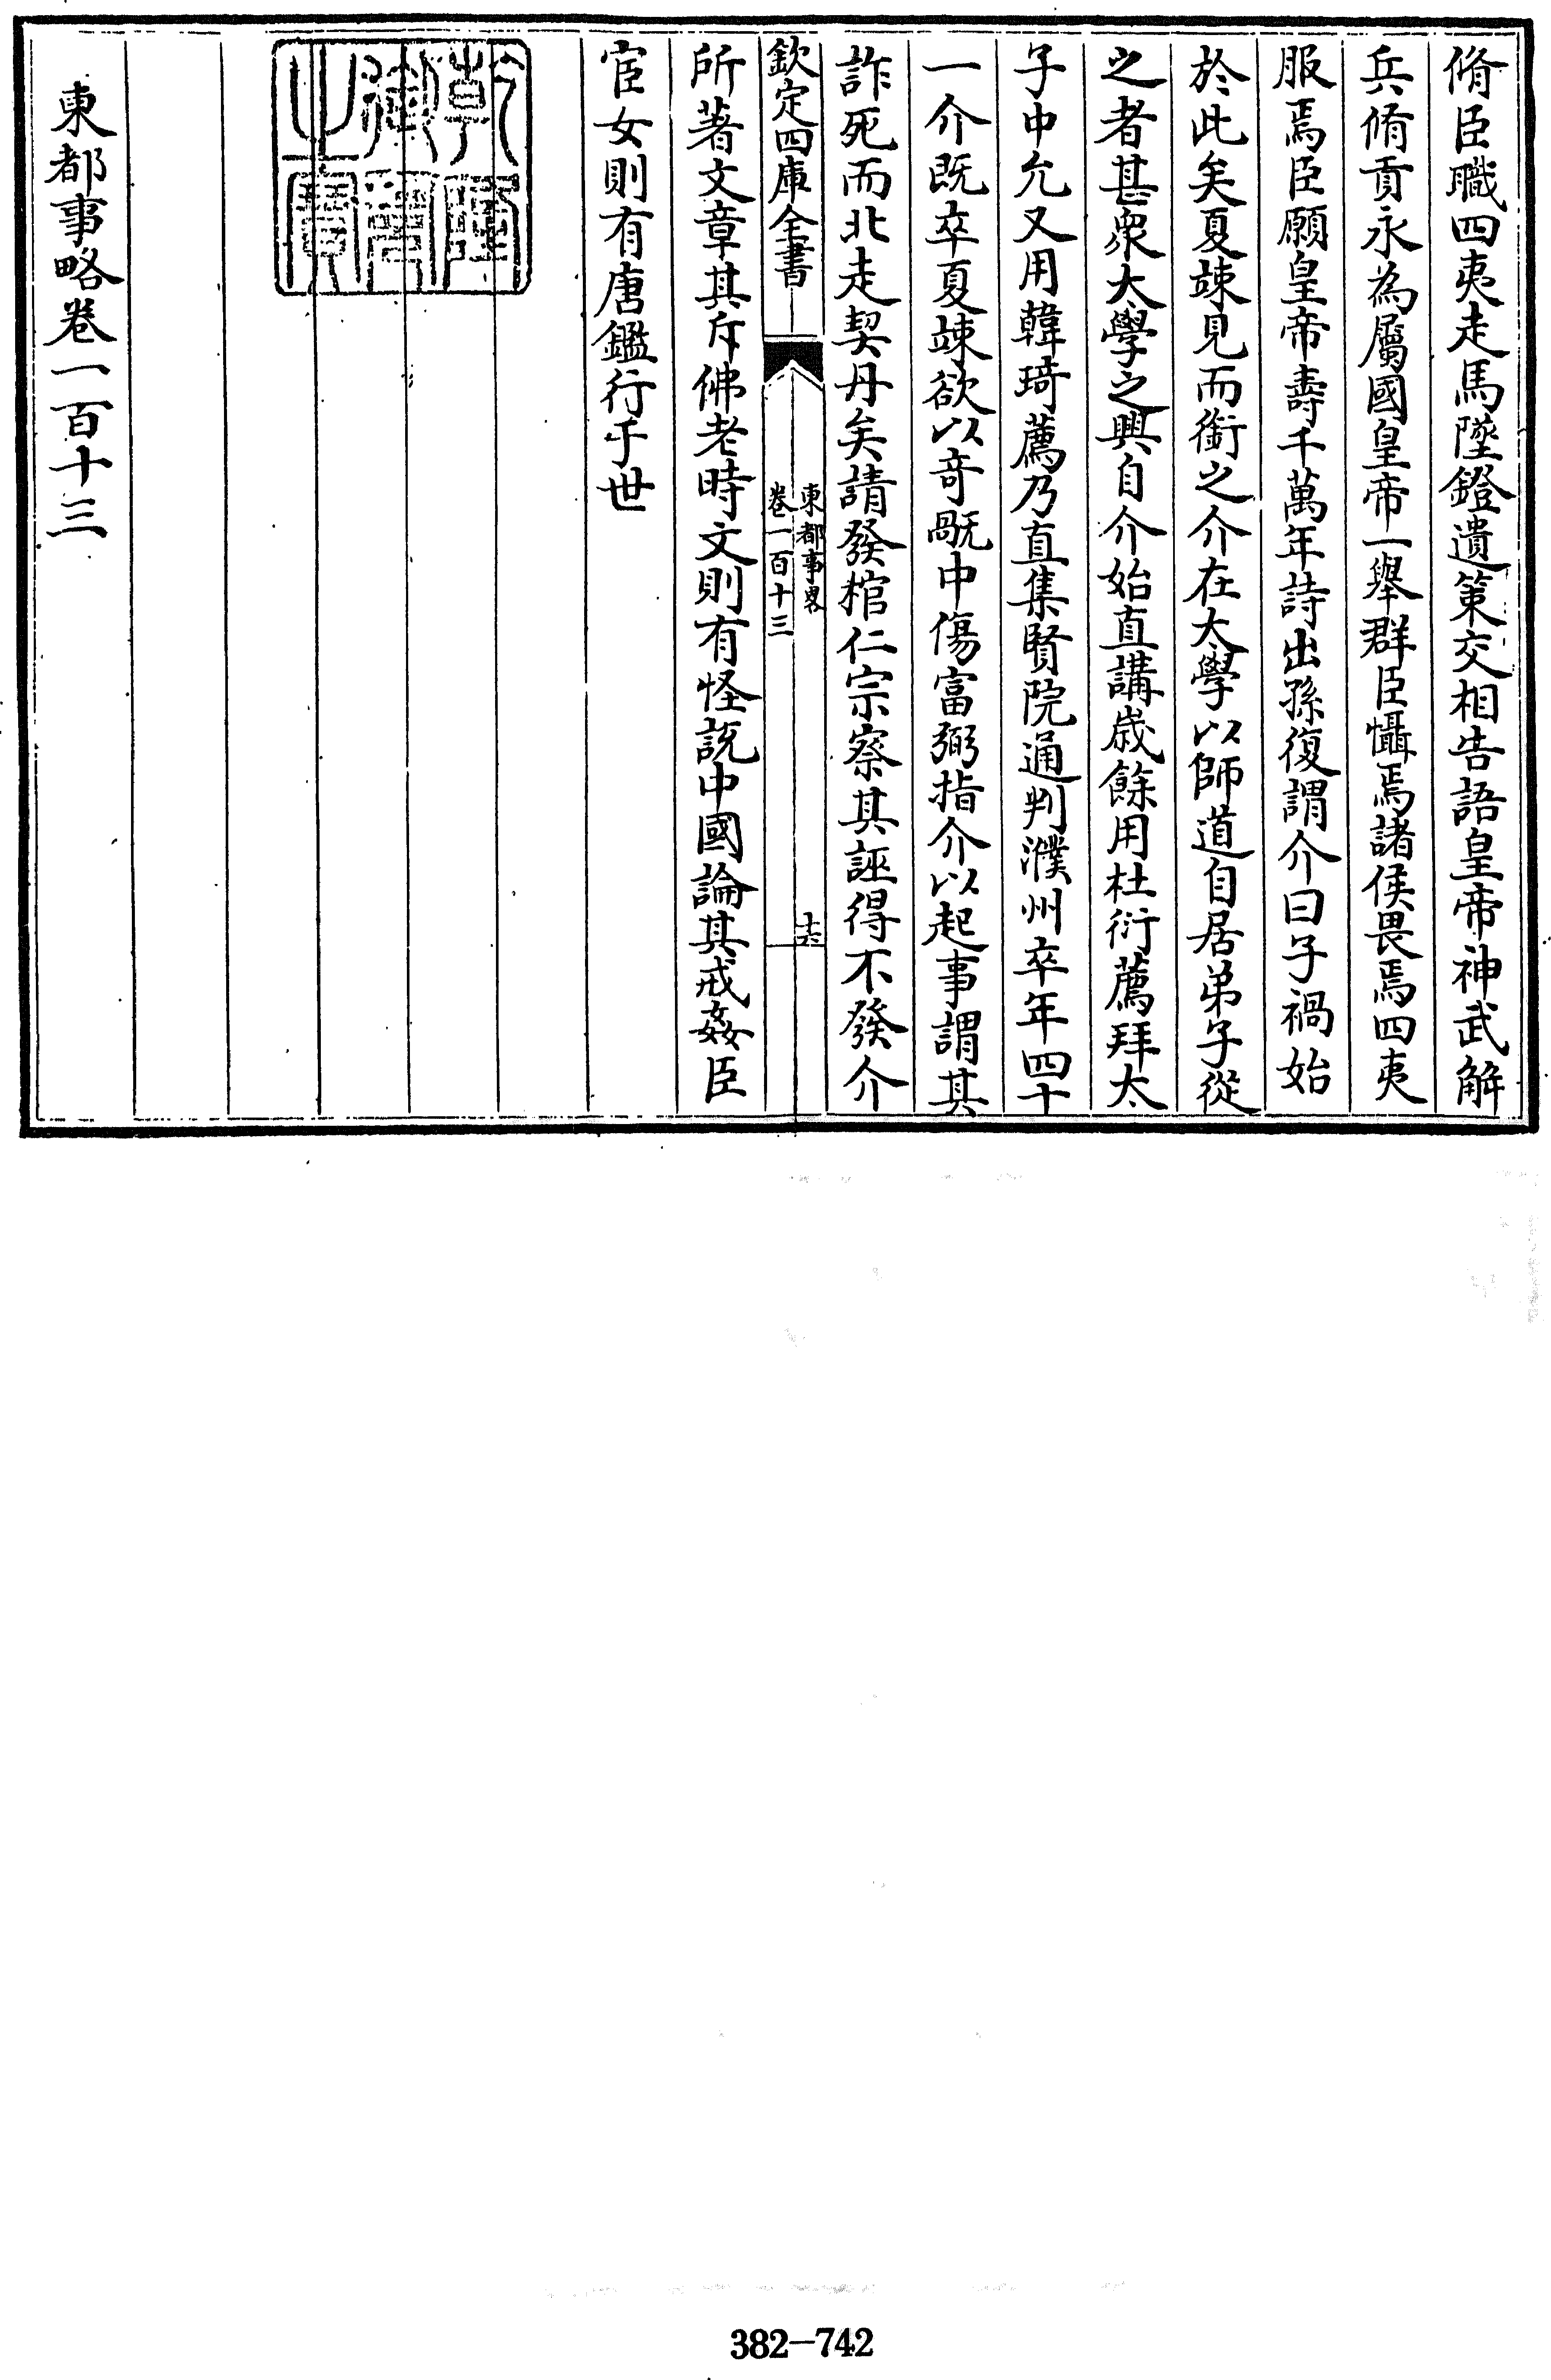 脩臣職四夷走馬墜鐙遺策交相告語皇帝神武解
兵脩貢永為屬國皇帝一舉群臣懾焉諸侯畏焉四夷
服焉臣願皇帝壽千萬年詩出孫復謂介曰子禍始
於此矣夏竦見而銜之介在太學以師道自居弟子從
之者甚衆大學之興自介始直講歲餘用杜衍薦拜太
子中允又用韓琦薦乃直集賢院通判濮州卒年四十
一介既卒夏竦欲以奇甌中傷富弼指介以起事謂其
詐死而北走契丹矣請發棺仁宗察其誣得不發介
欽定四庫全書
東都事畧
卷一百十三
十六
所著文章其斥佛老時文則有怪說中國論其戒姦臣
宦女則有唐鑑行于世
乾隆御覽之寶
東都事略卷一百十三
382-742